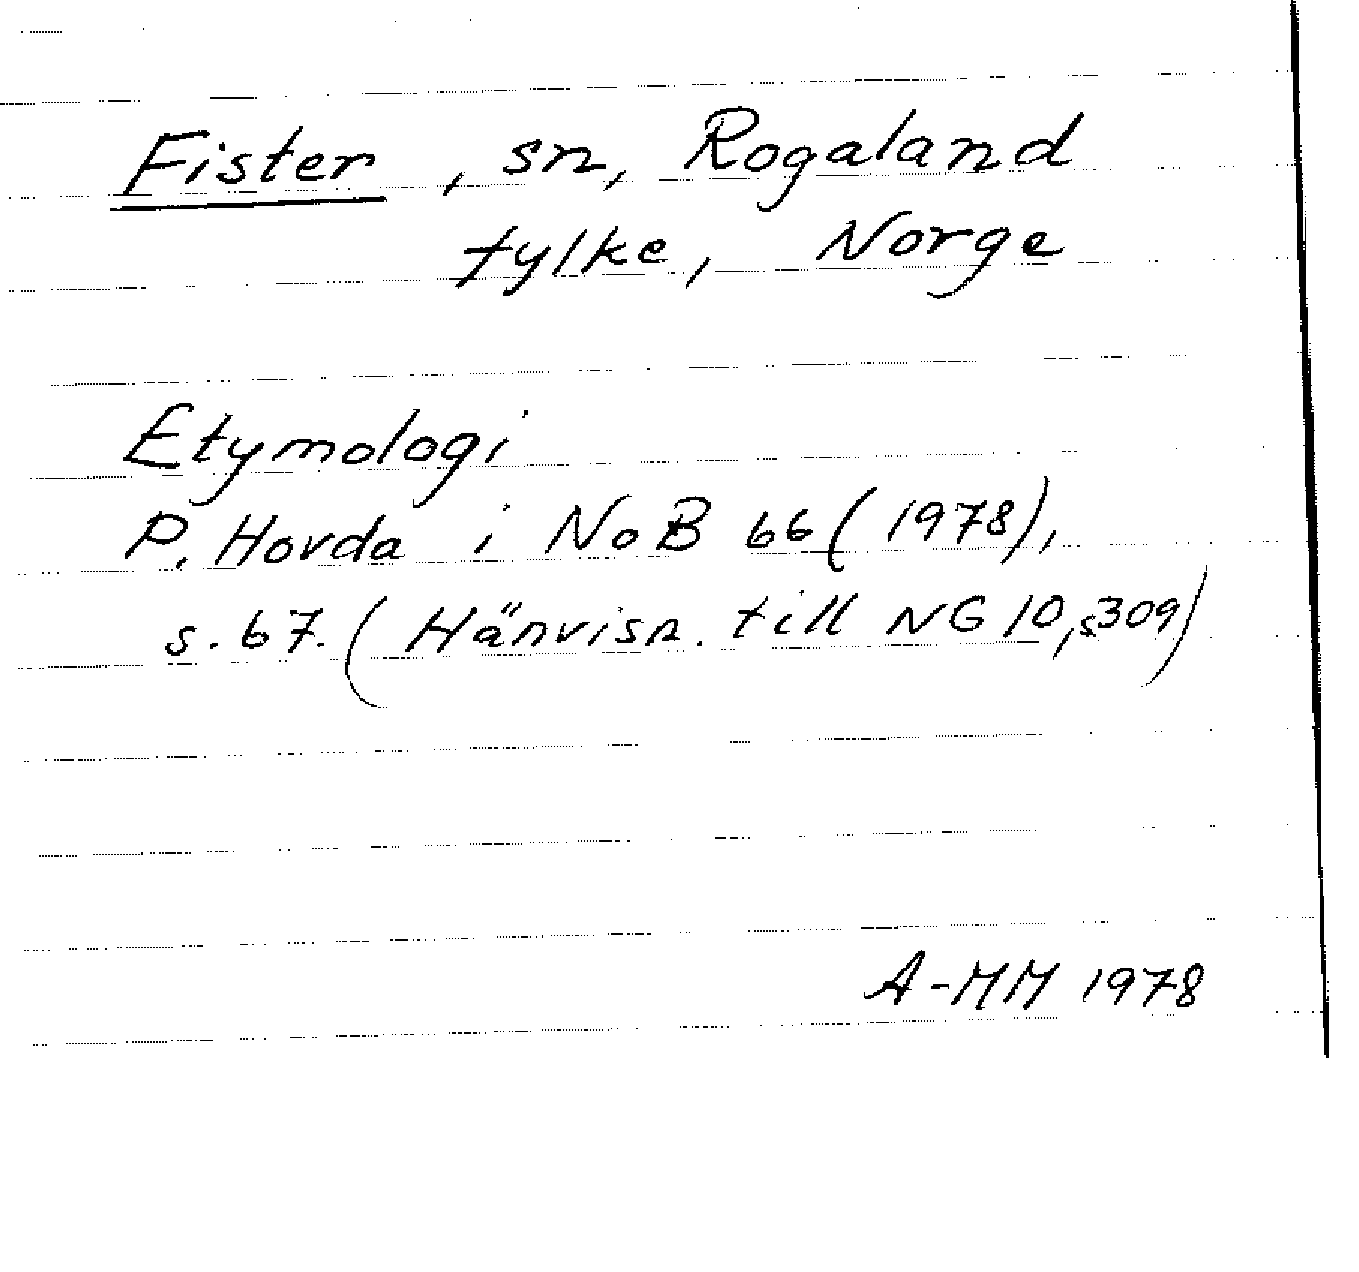 Fister, sn, Rogaland
fylke, Norge
Etymologi
P. Hovda i NoB 66 (1978),
s. 67. (Hänvisn. till NG 10, s 309)
A-MM 1978